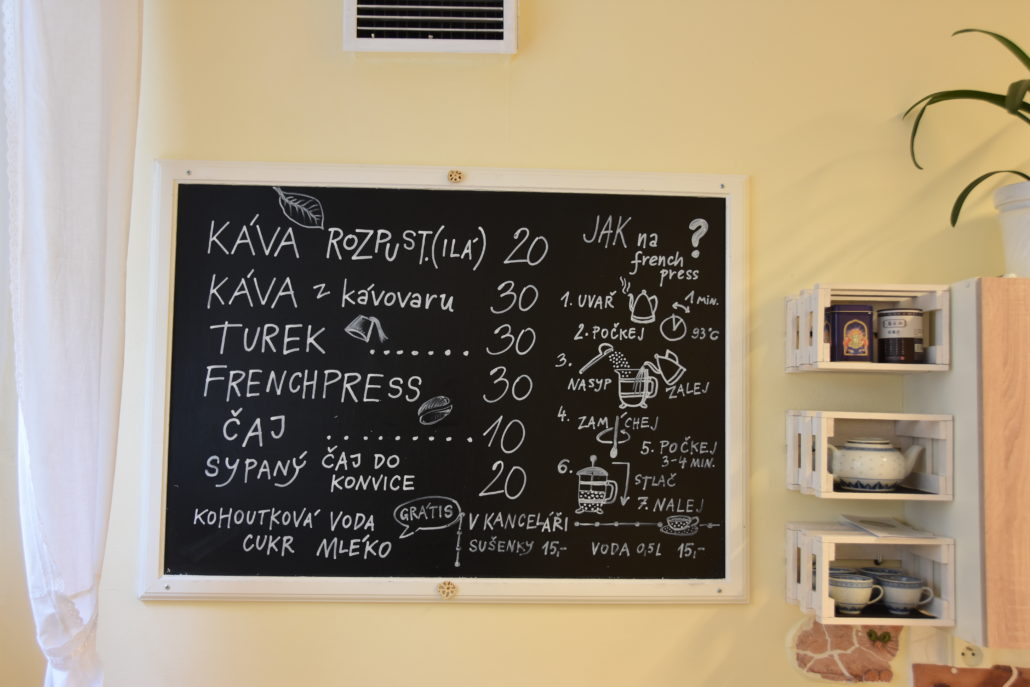 KÁVA ROZPUST.(ILÁ) 20
KÁVA z kávovaru 30
TUREK ....... 30
FRENCHPRESS 30
ČAJ .......... 10
SYPANÝ ČAJ DO KONVICE 20
KOHOUTKOVÁ VODA
CUKR MLÉKO
GRÁTIS
V KANCELÁŘI
SUŠENKY 15,- VODA 0,5L 15,-
JAK na
french
press
?
1. UVAŘ
1 MIN.
2. POČKEJ 93°C
3.
NASYP ZALEJ
4. ZAMÍCHEJ
5. POČKEJ
3-4 MIN.
6. STLAČ
7. NALEJ